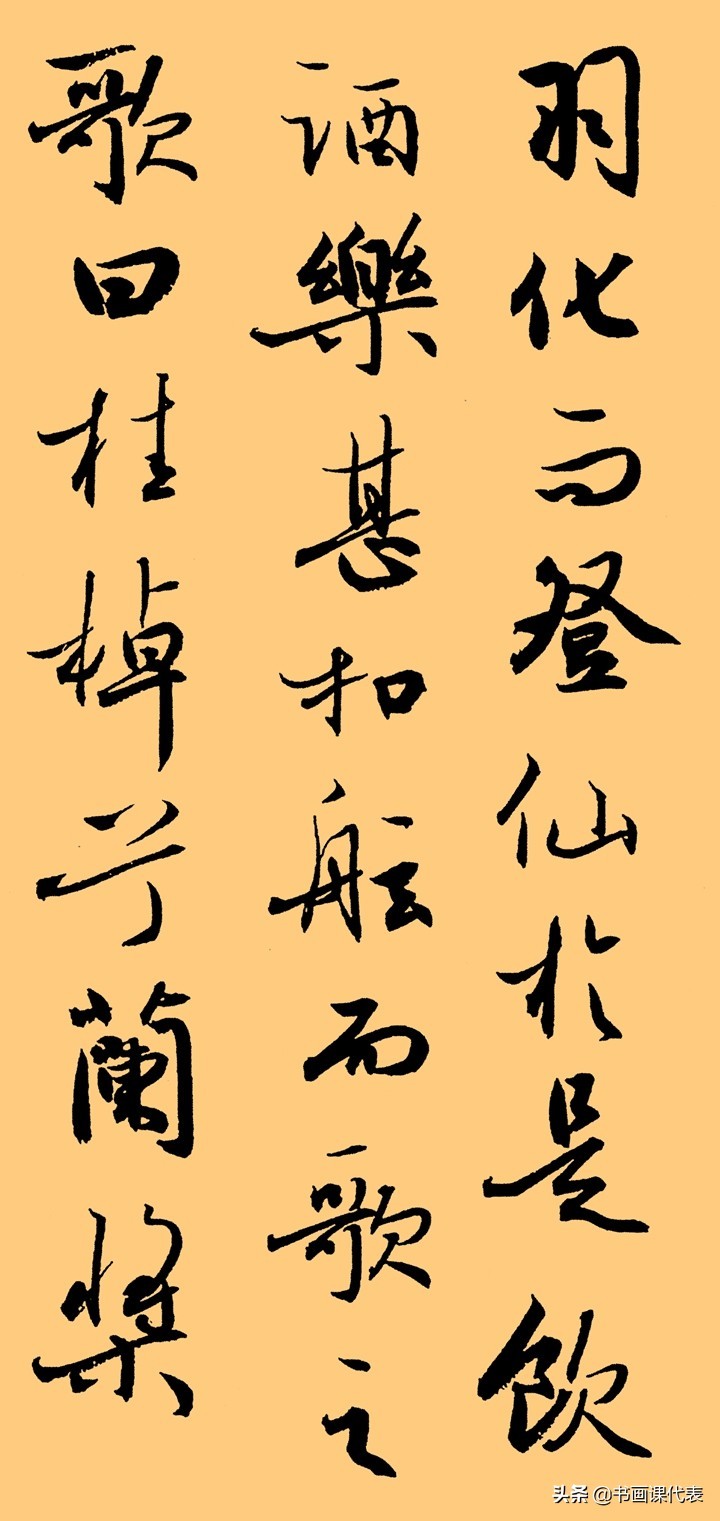 羽化而登仙於是飲
酒樂甚扣舷而歌之
歌曰桂棹兮蘭槳
头条 @书画课代表